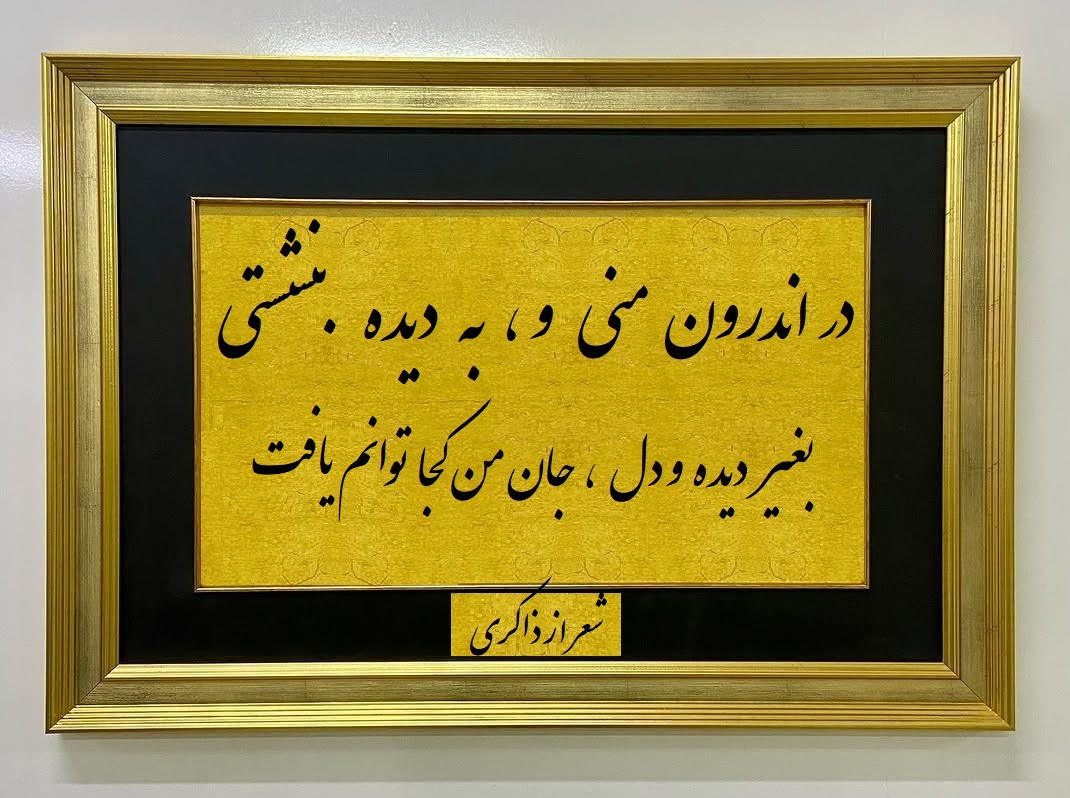 در اندرون منی و ، به دیده بنشستی
بغیر دیده و دل ، جان من کجا توانم یافت
شعر از ذاکری